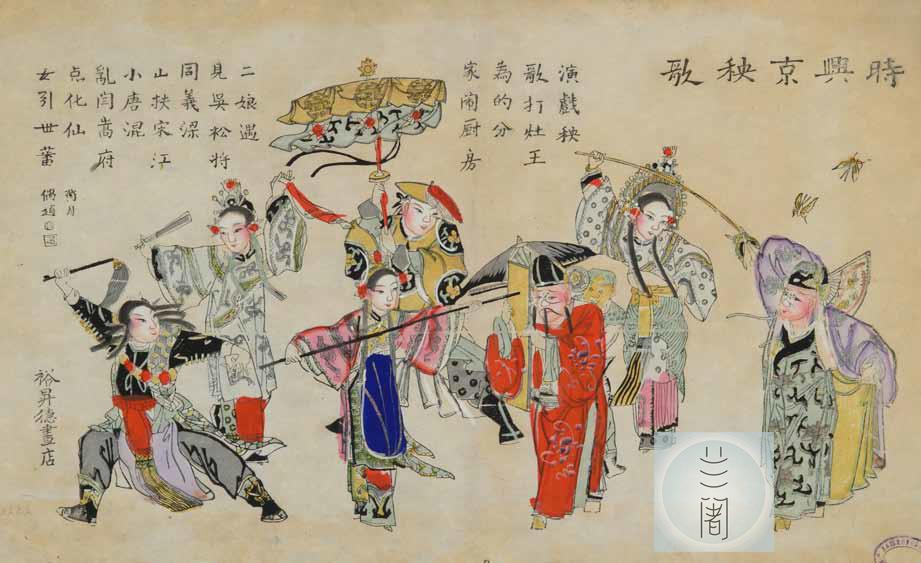 時興京秧歌
演戲秧
歌打灶王
為的分
家闹厨房
二娘遇
見吳松將
同義梁
山扶宋江
小唐混
亂閆嵩府
点化仙
女引世蕃
荷月
裕昇德畫店